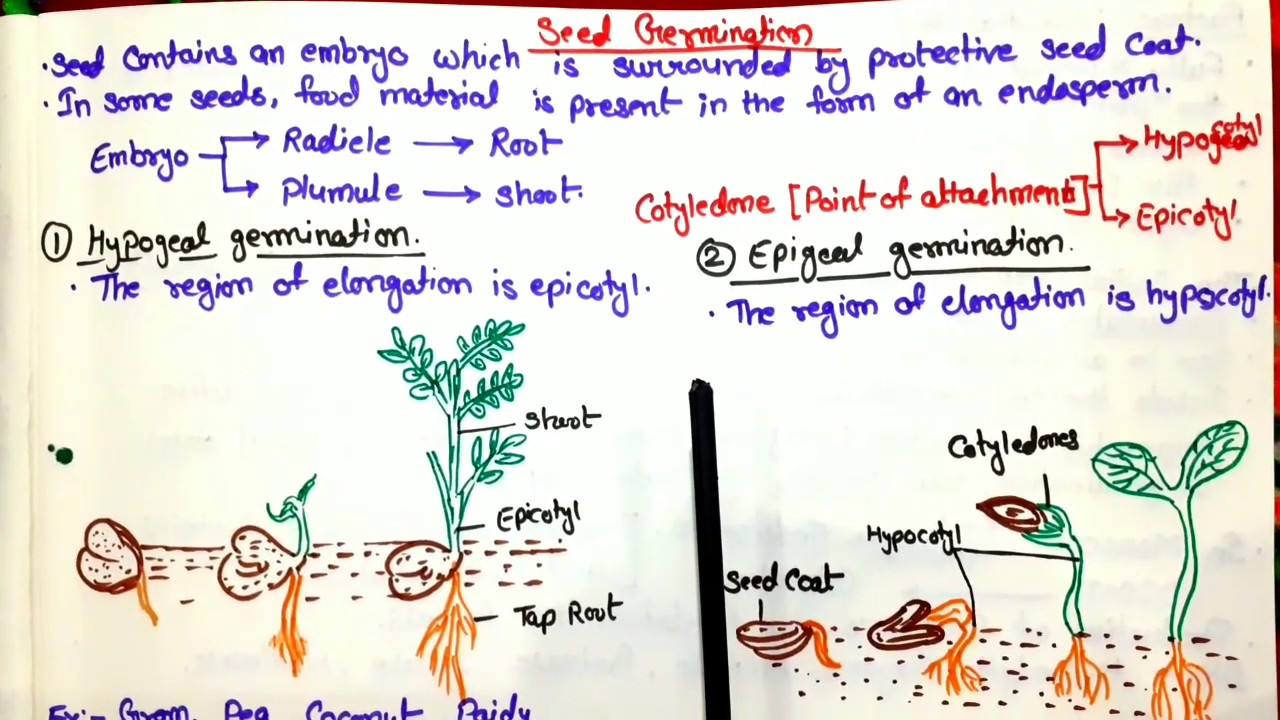 Seed Germination
• Seed Contains an embryo which is surrounded by protective seed Coat.
• In some seeds, food material is present in the form of an endosperm.
Embryo → Radicle → Root
→ Plumule → Shoot.
Cotyledone [Point of attachment]
→ Hypocotyl
→ Epicotyl
① Hypogeal germination.
• The region of elongation is epicotyl.
Shoot
Epicotyl
Tap Root
Ex:- Gram, Pea, Coconut, Paidy
② Epigeal germination.
• The region of elongation is hypocotyl.
Cotyledones
Hypocotyl
Seed Coat